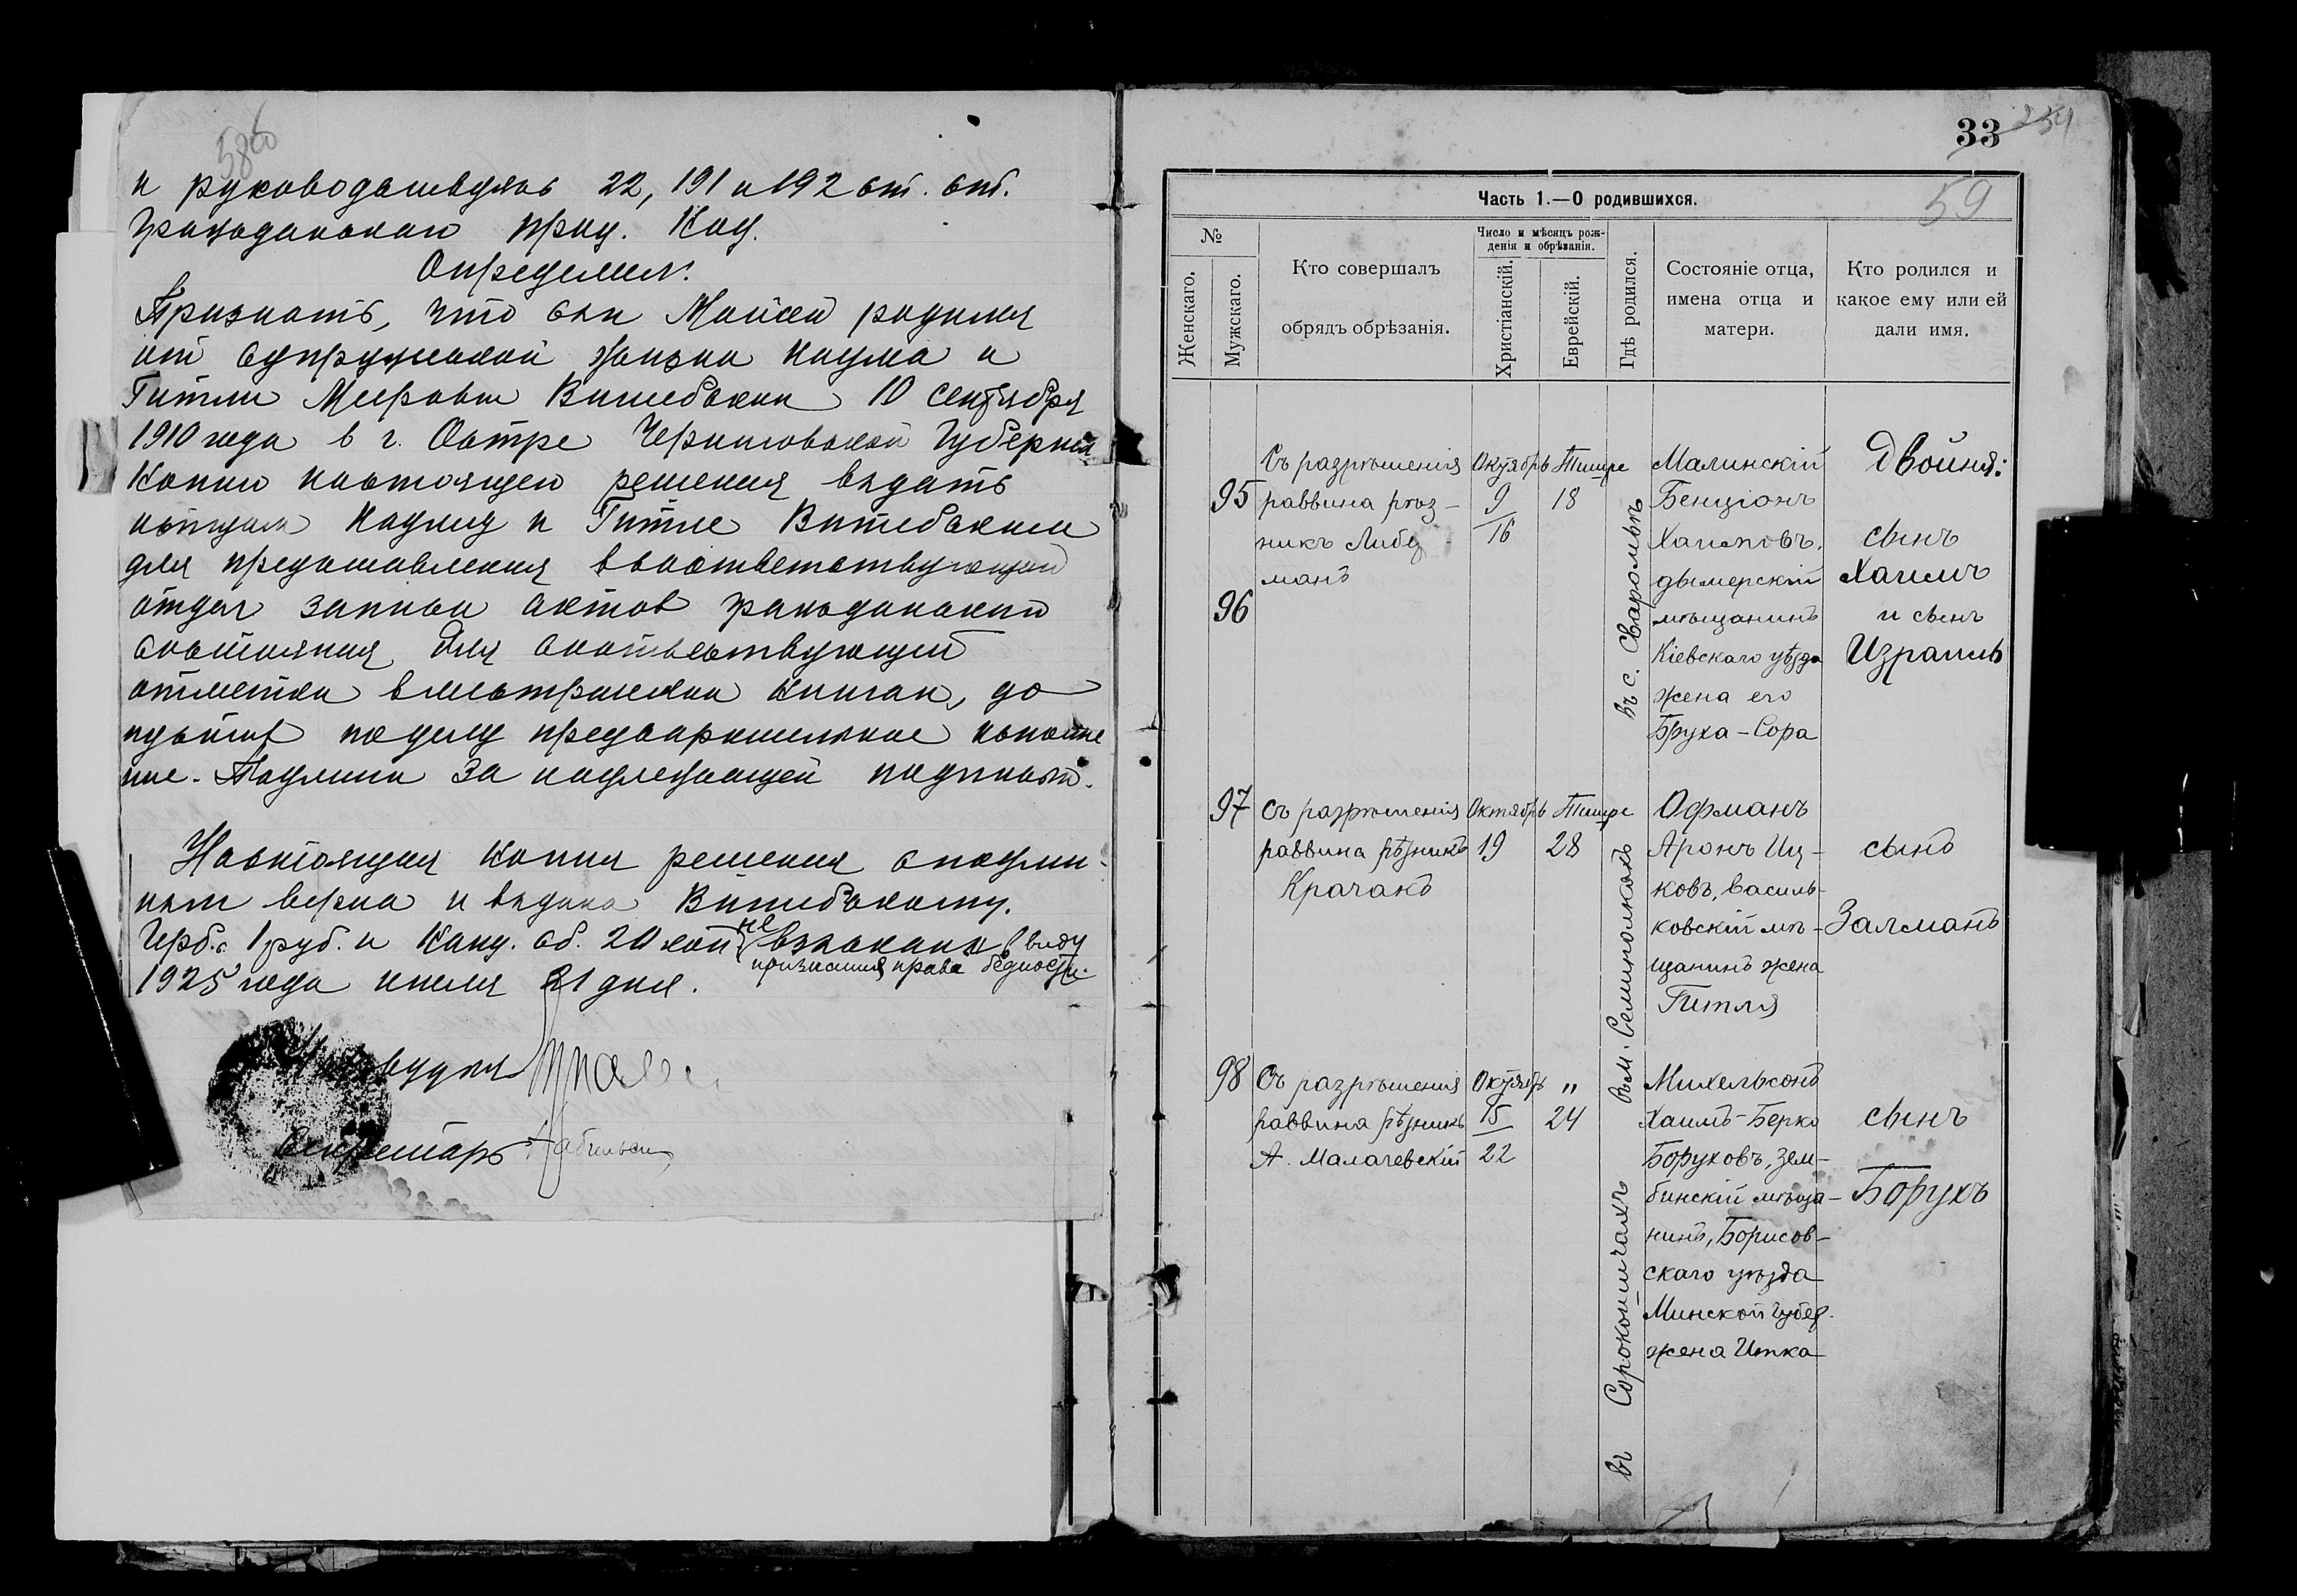 58об
и руководствуясь 22, 191 и 192 ст. ст.
Гражданского Проц. Код.
Определил:
Признать, что сын Моисей родился
от супружеской жизни Наума и
Гитли Мееровы Витебских 10 сентября
1910 года в г. Остре Черниговской Губернии
Копию настоящего решения выдать
истцам Науму и Гитле Витебским
для представления в соответствующий
отдел записи актов гражданского
состояния для соответствующей
отметки в метрических книгах, до
пустив по делу предварительное исполне
ние. Подлинное за надлежащей подписью.
Настоящая копия решения с подлин-
ным верна и выдана Витебскому.
Герб. с. 1 руб. и Канц. сб. 20 коп не взысканы ввиду
признания права бедности.
1925 года июля 21 дня.
Нарсудья
Секретарь
33 234
59
Часть 1.—О родившихся.
№
Женскаго.
Мужскаго.
Кто совершалъ
обрядъ обрѣзанія.
Число и мѣсяцъ рож-
денія и обрѣзанія.
Христіанскій.
Еврейскій.
Гдѣ родился.
Состояніе отца,
имена отца и
матери.
Кто родился и
какое ему или ей
дали имя.
95
96
Съ разрѣшенія
раввина рѣз-
никъ Либер-
манъ
Октябрь
9
16
Тишре
18
въ с. Сваромье
Малинскій
Бенціонъ
Хаимовъ,
дымерскій
мѣщанинъ
Кіевскаго уѣзда
жена его
Бруха-Сора
Двойня:
сынъ
Хаимъ
и сынъ
Израиль
97
Съ разрѣшенія
раввина рѣзникъ
Крачакъ
Октябрь
19
Тишре
28
въ м. Семиполкахъ
Офманъ
Аронъ Иц-
ковъ, василь-
ковскій мѣ-
щанинъ жена
Гитля
сынъ
Залманъ
98
Съ разрѣшенія
раввина рѣзникъ
А. Малачевскій
Октябрь
15
22
"
24
въ Сорокошичахъ
Михельсонъ
Хаимъ-Берко
Боруховъ, зем-
бинскій мѣща-
нинъ, Борисов-
скаго уѣзда
Минской губер.
жена Итка
сынъ
Борухъ